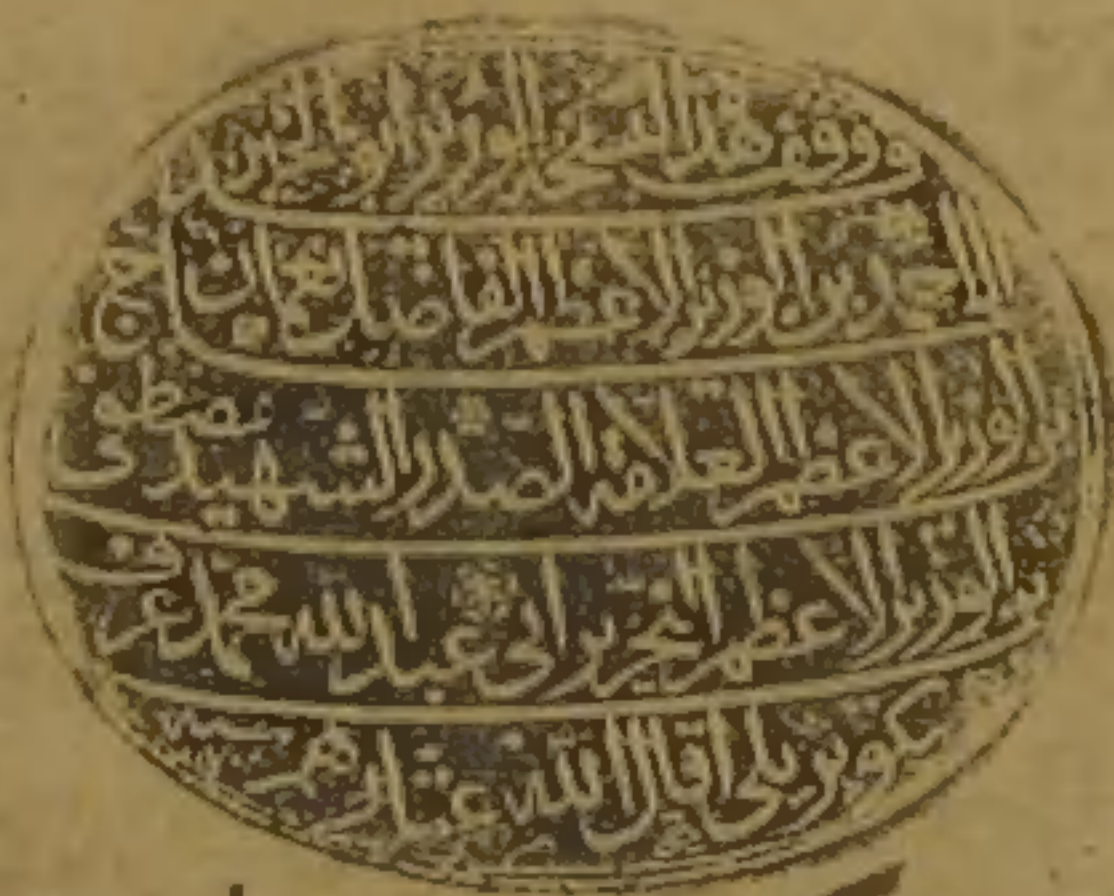 وقف هذه النسخة الوزير ابو الخير الحاج
احمد بن الوزير الاعظم الفاضل نعمان
بن الوزير الاعظم العلامة الصدر الشهيد مصطفى
بن الوزير الاعظم النحرير ابي عبد الله محمد عرف
بكوبريلي اقال الله عثارهم